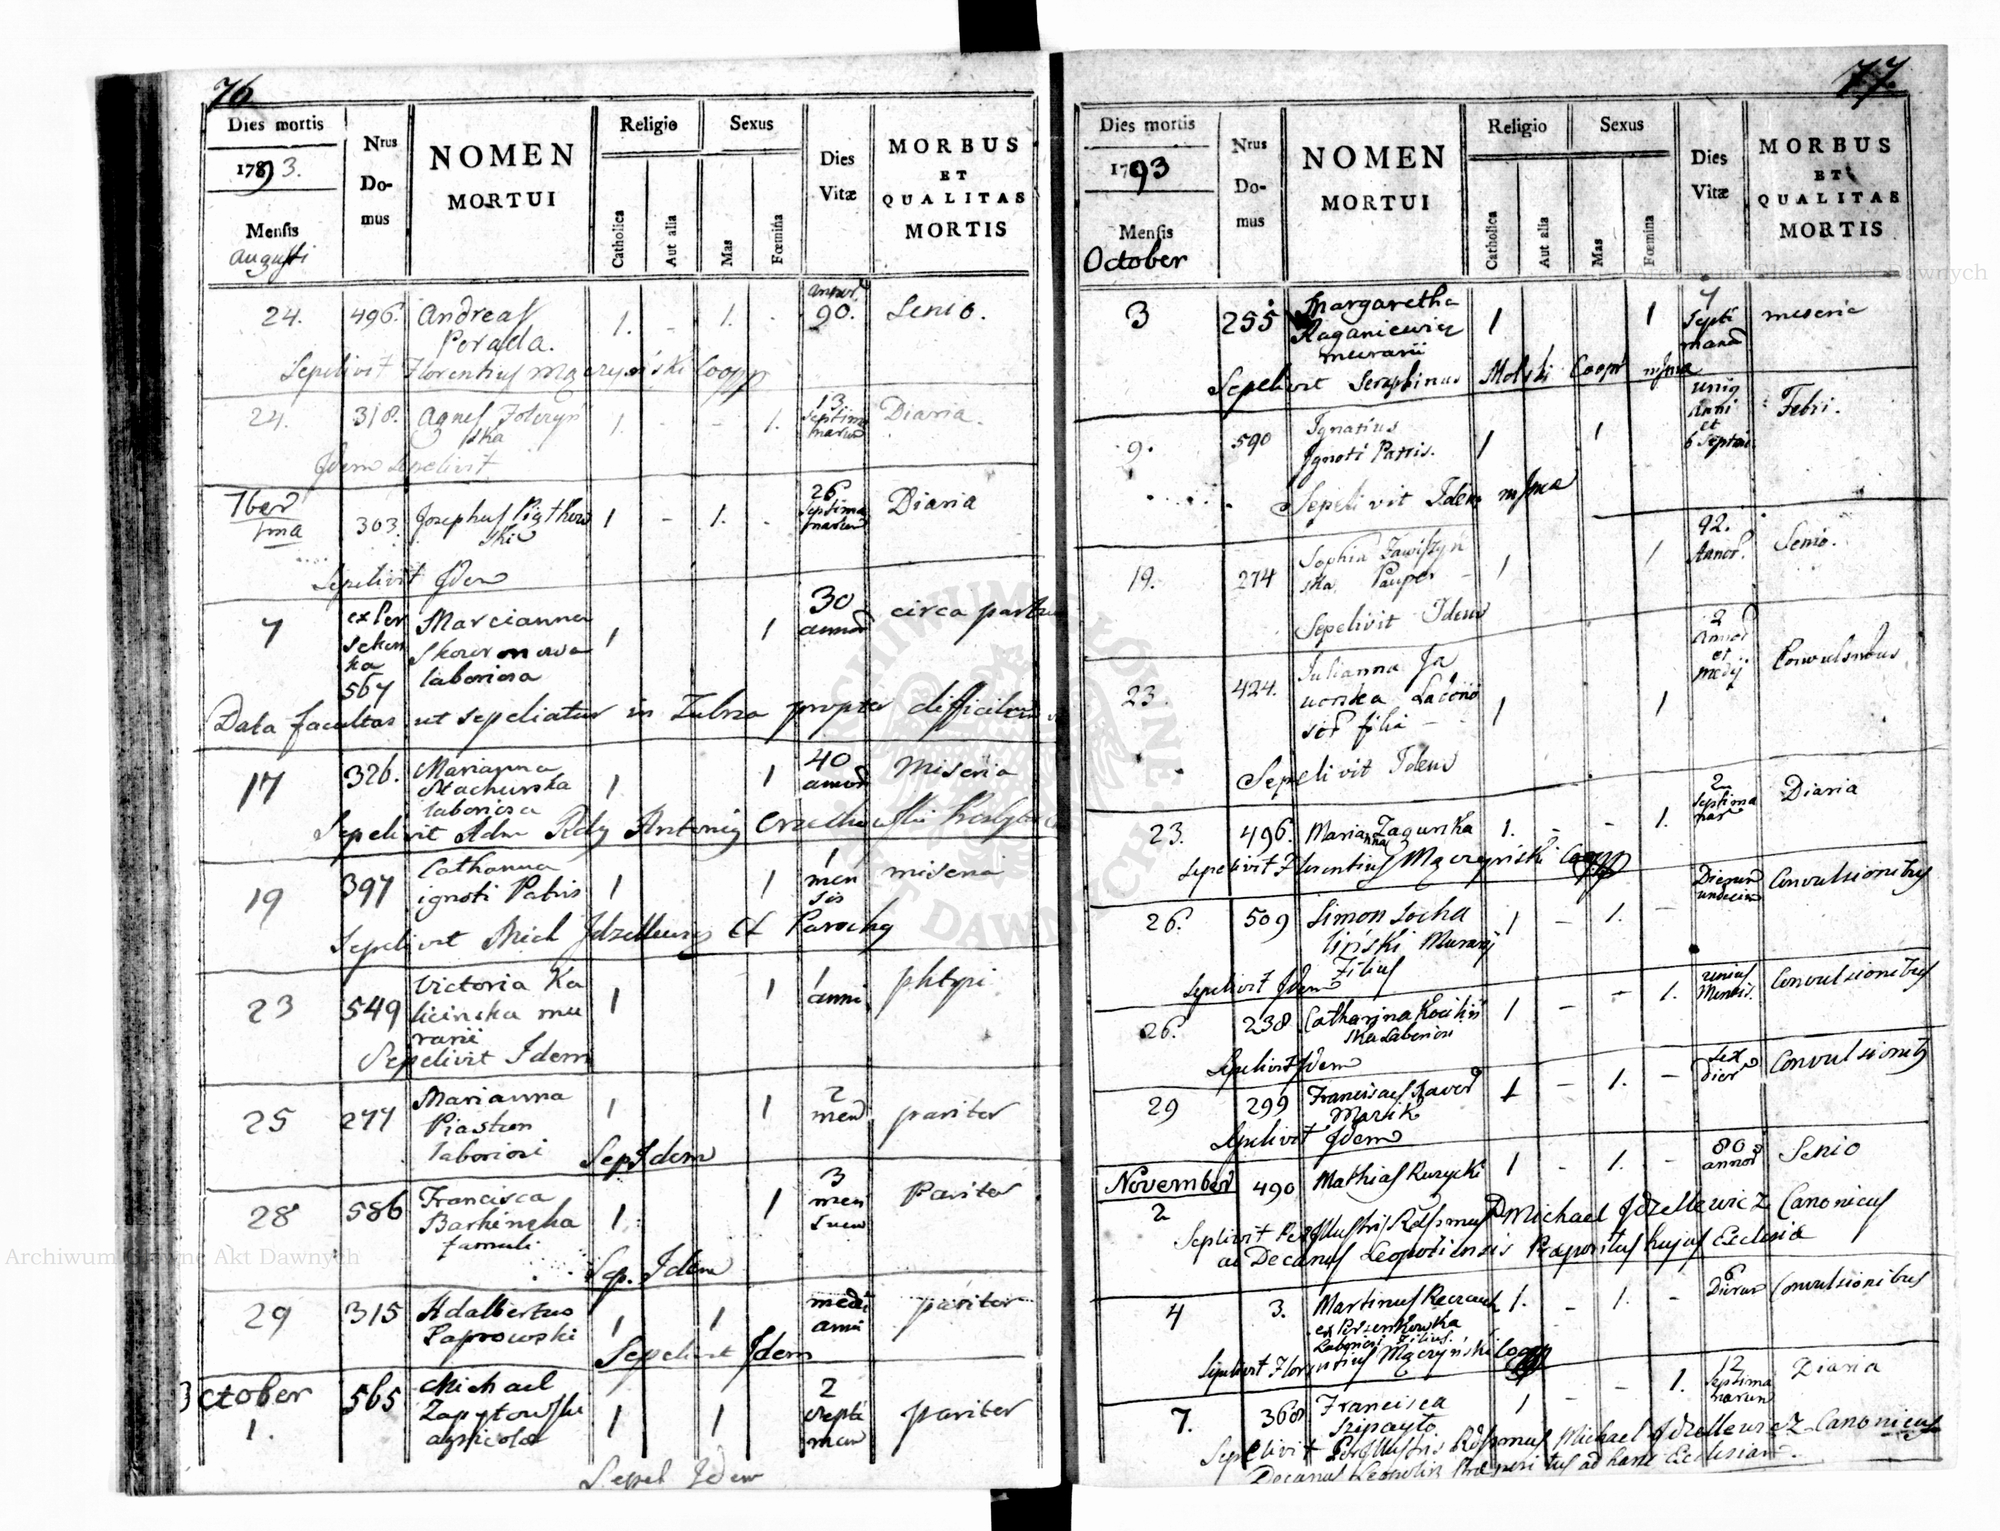 76
Dies mortis
1793.
Mensis
Augusti
Nrus
Do-
mus
NOMEN
MORTUI
Religio
Catholica
Aut alia
Sexus
Mas
Fœmina
Dies
Vitæ
MORBUS
ET
QUALITAS
MORTIS
24. 496. Andreas 1. - 1. . annor 90. Senio.
Porada.
Sepelivit Florentius Mączyński Coopp
24. 318. Agnes 1. - - 1. 13 Septimanarum Diaria.
Idem Sepelivit
7ber
1ma 303. Josephus Piątkow 1 - 1. . 26 Septimanarum Diaria
ski
Sepelivit Idem
7 ex Per 567 Marcianna 1 1 30 annor circa partum
laboriosa
Data facultas ut sepeliatur in Zubrza propter
17 326. Marianna 1 1 40 annor Miseria
Stachurska
laboriosa
Sepelivit Adm Rdy Antoniy
19 397 Catharina 1 1 1 men sis miseria
ignoti Patris
Sepelivit Mich
23 549 Victoria Ka 1 1 1 anni phtysi
licinska mu
rarii
Sepelivit Idem
25 277 Marianna 1 1 2 men pariter
laboriosi
Sep Idem
28 586 Francisca 1 1 3 men sium Pariter
famuli
Sep. Idem
29 315 Adalbertus 1 1 medii anni pariter
Paprowski
Sepelivit Idem
October
1. 565 Michael 1 1 2 septi man pariter
agricola
Sepel Idem
77.
Dies mortis
1793
Mensis
October
Nrus
Do-
mus
NOMEN
MORTUI
Religio
Catholica
Aut alia
Sexus
Mas
Fœmina
Dies
Vitæ
MORBUS
ET
QUALITAS
MORTIS
3 255 Margaretha 1 1 7 Septi manar miseria
murarii
Sepelivit Seraphinus Molski Coopr mpma
9. 590 Ignatius 1 1 unig Anni et 6 Septim Febri.
Ignoti Patris.
Sepelivit Idem mpma
19. 274 Sophia 1 1 92. Annor. Senio.
ska, Pauper -
Sepelivit Idem
23. 424. Julianna Ja 1 1 2 Annor et medij Convulsivus
worska Laborio
sor filia - -
Sepelivit Idem
23. 496. Marianna Zagurska 1. - - 1. 2 Septima nar Diaria
Sepelivit Florentius Mączyński Coopp
26. 509 Simon Socha 1 - 1. - Dierum undecim Convulsionibus
liński Murarij
Filius
Sepelivit Idem
26. 238 Catharina 1 - - 1. unius Mensis. Convulsionibus
ska Laboriosi
Sepelivit Idem
29 299 Franciscus Xaver 1 - 1. - sex dier Convulsionib
Marsik
Sepelivit Idem
November
2 490 Mathias Kurycki 1 - 1. - 80 annor Senio
Sepelivit Perillustris Rdssmus D Michael Idzellewicz Canonicus
ac Decanus Leopoliensis Præpositus hujus Ecclesiæ
4 3. Martinus 1. - 1. - 6 Dierum Convulsionibus
ex Persenkowka
Laboriosi Filius.
Sepelivit Florentius Mączyński Coopp
7. 368 Francisca 1 - - 1. 12 Septima narum Diaria
Sepelivit Perillustris Rdssmus Michael Idzellewicz Canonicus
Decanus Leopolien Præpositus ad hanc Ecclesiam.
Archiwum Główne Akt Dawnych
Archiwum Główne Akt Dawnych
ARCHIWUM GŁÓWNE AKT DAWNYCH